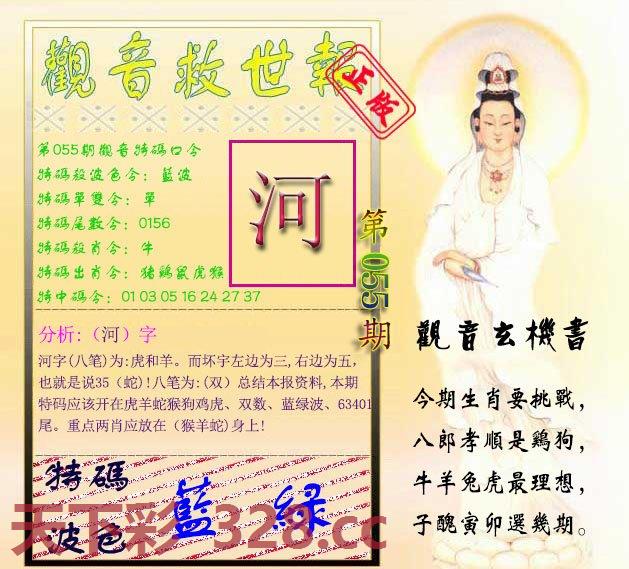 觀音救世報
正版
第055期觀音特碼口令
特碼殺波色令：藍波
特碼單雙令：單
特碼尾數令：0156
特碼殺肖令：牛
特碼出肖令：猪鷄鼠虎猴
特中碼令：01 03 05 16 24 27 37
河
第055期
分析:（河）字
河字(八笔)为:虎和羊。而坏宇左边为三,右边为五，
也就是说35（蛇)!八笔为:(双）总结本报资料,本期
特码应该开在虎羊蛇猴狗鸡虎、双数、蓝绿波、63401
尾。重点两肖应放在（猴羊蛇)身上!
特碼
波色
藍 綠
天下彩 328.cc
觀音玄機書
今期生肖要挑戰，
八郎孝順是鷄狗，
牛羊兔虎最理想，
子醜寅卯選幾期。